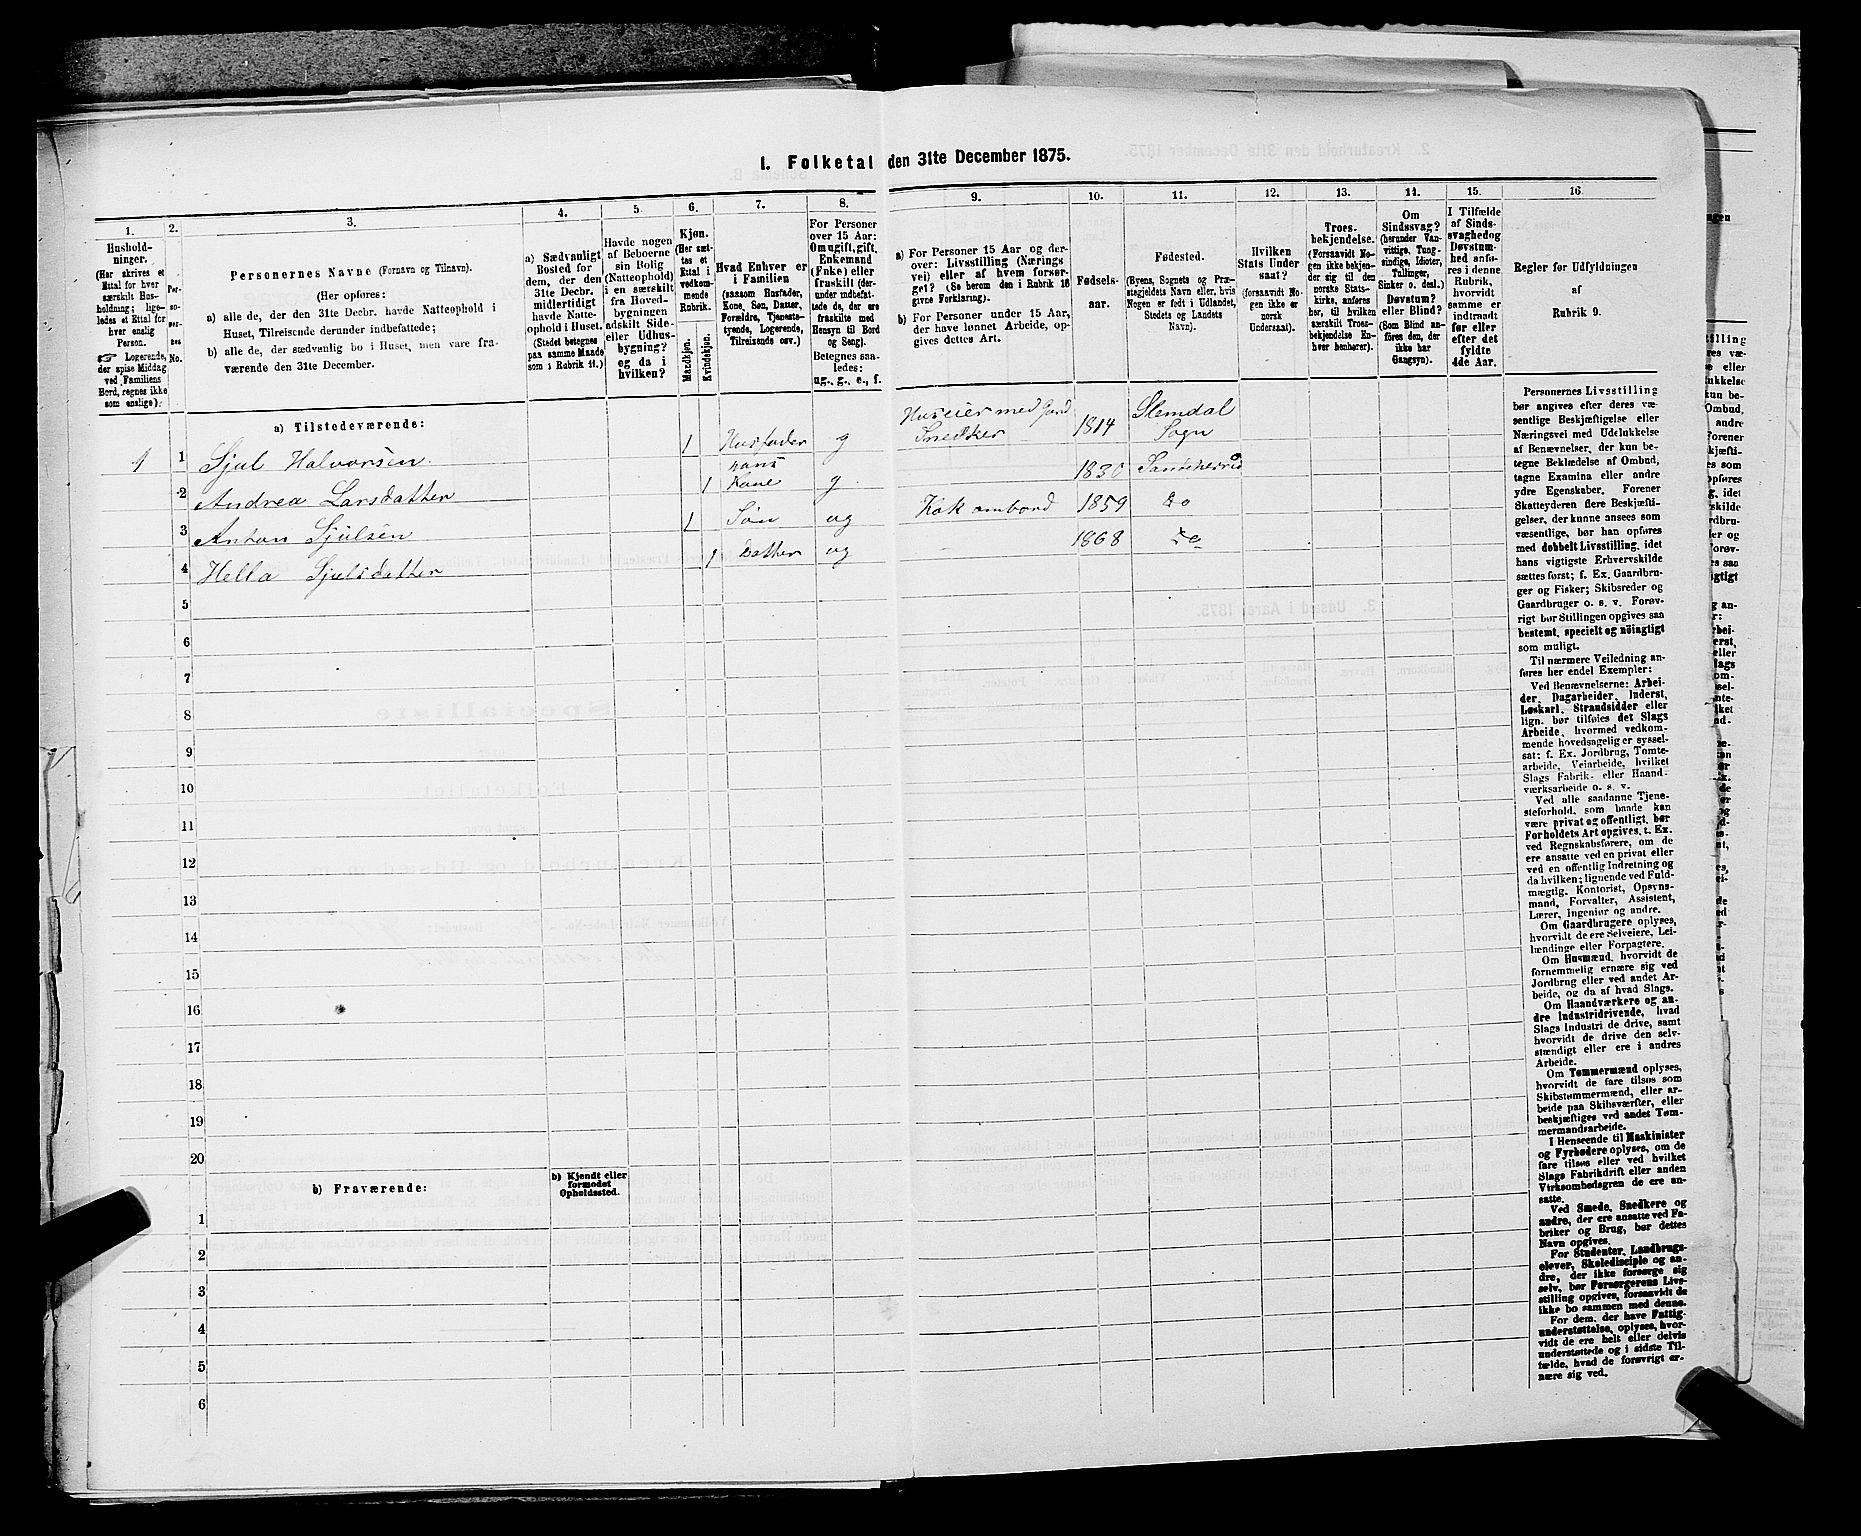 1. Folketal den 31te December 1875.
1.
Hushold-
ninger.
(Her skrives et
Ettal for hver
særskilt Hus-
holdning; lige-
ledes et Ettal for
hver enslig
Person.
☞ Logerende,
der spise Middag
ved Familiens
Bord, regnes ikke
som enslige).
2.
Per-
so-
ner-
nes
No.
3.
Personernes Navne (Fornavn og Tilnavn).
(Her opføres:
a) alle de, der den 31te Decbr. havde Natteophold i
Huset, Tilreisende derunder indbefattede;
b) alle de, der sædvanlig bo i Huset, men vare fra-
værende den 31te December.
4.
a) Sædvanligt
Bosted for
dem, der den
31te Decbr.
midlertidigt
havde Natte-
ophold i Huset.
(Stedet betegnes
paa samme Maade
som i Rubrik 11.)
5.
Havde nogen
af Beboerne
sin Bolig
(Natteophold)
i en særskilt
fra Hoved-
bygningen
adskilt Side-
eller Udhus-
bygning?
og da i
hvilken?
6.
Kjøn.
(Her sæt-
tes et
Ettal i
vedkom-
mende
Rubrik.
Mandkjøn.
Kvindekjøn.
7.
Hvad Enhver er
i Familien
(saasom Husfader,
Kone, Søn, Datter,
Forældre, Tjeneste-
tyende, Logerende,
Tilreisende osv.).
8.
For Personer
over 15 Aar:
Om ugift, gift,
Enkemand
(Enke) eller
fraskilt (der-
under indbefat-
tede de, der ere
fraskilte med
Hensyn til Bord
og Seng).
Betegnes saa-
ledes:
ug., g., e., f.
9.
a) For Personer 15 Aar og der-
over: Livsstilling (Nærings-
vei) eller af hvem forsør-
get? (Se herom den i Rubrik 16
givne Forklaring).
b) For Personer under 15 Aar,
der have lønnet Arbeide, op-
gives dettes Art.
10.
Fødsels-
aar.
11.
Fødested.
(Byens, Sognets og Præ-
stegjeldets Navn eller, hvis
Nogen er født i Udlandet,
Stedets og Landets
Navn).
12.
Hvilken
Stats Under
saat?
(forsaavidt No-
gen ikke er
norsk
Undersaat).
13.
Troes-
bekjendelse.
(Forsaavidt No-
gen ikke bekjen-
der sig til den
norske Stats-
kirke, anføres
her, til hvilken
særskilt Troes-
bekjendelse En-
hver henhører).
14.
Om
Sindssvag?
(herunder Van-
vittige, Tung-
sindige, Idioter,
Tullinger,
Sinker o. desl.)
Døvstum?
eller Blind?
(Som Blind an-
føres den, der
ikke har
Gangsyn).
15.
I Tilfælde
af Sinds-
svaghed og
Døvstum-
hed anfø-
res i denne
Rubrik,
hvorvidt
samme er
indtraadt
før eller
efter det
fyldte
4de Aar.
16.
Regler for Udfyldningen
af
Rubrik 9.
a) Tilstedeværende:
1 1 Sjul Halvorsen. 1 Husfader g Huseier med Jord Snedker 1814 Slemdal Sogn
2 Andrea Larsdatter 1 hans Kone g. 1830 Sandeherred
3 Anton Sjulsen 1 Søn ug Kok ombord 1859 Do
4 Hella Sjulsdatter 1 Datter ug — 1868 Do
5
6
7
8
9
10
11
12
13
14
15
16
17
18
19
20
b) Fraværende:
b) Kjendt eller
formodet
Opholdssted.
1
2
3
4
5
6
Personernes Livsstilling
bør angives efter deres væ-
sentlige Beskjæftigelse eller
Næringsvei med Udelukkelse
af Benævnelser, der kun be-
tegne Beklædelse af Ombud,
tagne Examina eller andre
ydre Egenskaber. Forener
Skatteyderen flere Beskjæfti-
gelser, der kunne ansees som
væsentlige, bør han opføres
med dobbelt Livsstilling, idet
hans vigtigste Erhvervskilde
sættes først; f. Ex. Gaardbru-
ger og Fisker; Skibsreder og
Gaardbruger o. s. v. Forøv-
rigt bør Stillingen opgives saa
bestemt, specielt og nöiagtigt
som muligt.
Til nærmere Veiledning an-
føres her endel Exempler:
Ved Benævnelserne: Arbei-
der, Dagarbeider, Inderst,
Løskarl, Strandsidder eller
lign. bør tilføies det Slags
Arbeide, hvormed vedkom-
mende hovedsagelig er syssel-
sat; f. Ex. Jordbrug, Tomte-
arbeide, Veiarbeide, hvilket
Slags Fabrik- eller Haand-
værksarbeide o. s. v.
Ved alle saadanne Tjene-
steforhold, som baade kan
være privat og offentligt, bør
Forholdets Art opgives, t. Ex.
ved Regnskabsførere, om de
ere ansatte ved en privat eller
ved en offentlig Indretning og
da hvilken; lignende ved Fuld-
mægtig, Kontorist, Opsyns-
mand, Forvalter, Assistent,
Lærer, Ingeniør og andre.
Om Gaardbrugere oplyses,
hvorvidt de ere Selveiere, Lei-
lændinge eller Forpagtere.
Om Husmænd, hvorvidt de
fornemmelig ernære sig ved
Jordbrug eller ved andet Ar-
beide, og da af hvad Slags.
Om Haandværkere og an-
dre Industridrivende, hvad
Slags Industri de drive, samt
hvorvidt de drive den selv-
stændigt eller ere i andres
Arbeide.
Om Tømmermænd oplyses,
hvorvidt de fare tilsøs som
Skibstømmermænd, eller ar-
beide paa Skibsværfter, eller
beskjæftiges ved andet Tøm-
mermandsarbeide.
I Henseende til Maskinister
og Fyrbødere oplyses, om de
fare tilsøs eller ved hvilket
Slags Fabrikdrift eller anden
Virksomhedsgren de ere an-
satte.
Ved Smede, Snedkere og
andre, der ere ansatte ved Fa-
briker og Brug, bør dettes
Navn opgives.
For Studenter, Landbrugs-
elever, Skoledisciple og an-
dre, der ikke forsørge sig
selv, bør Forsørgerens Livs-
stilling opgives, forsaavidt de
ikke bo sammen med denne.
For dem, der have Fattig-
understøttelse, oplyses, hvor-
vidt de ere helt eller delvis
understøttede og i sidste Til-
fælde, hvad de forøvrigt er-
nære sig ved.